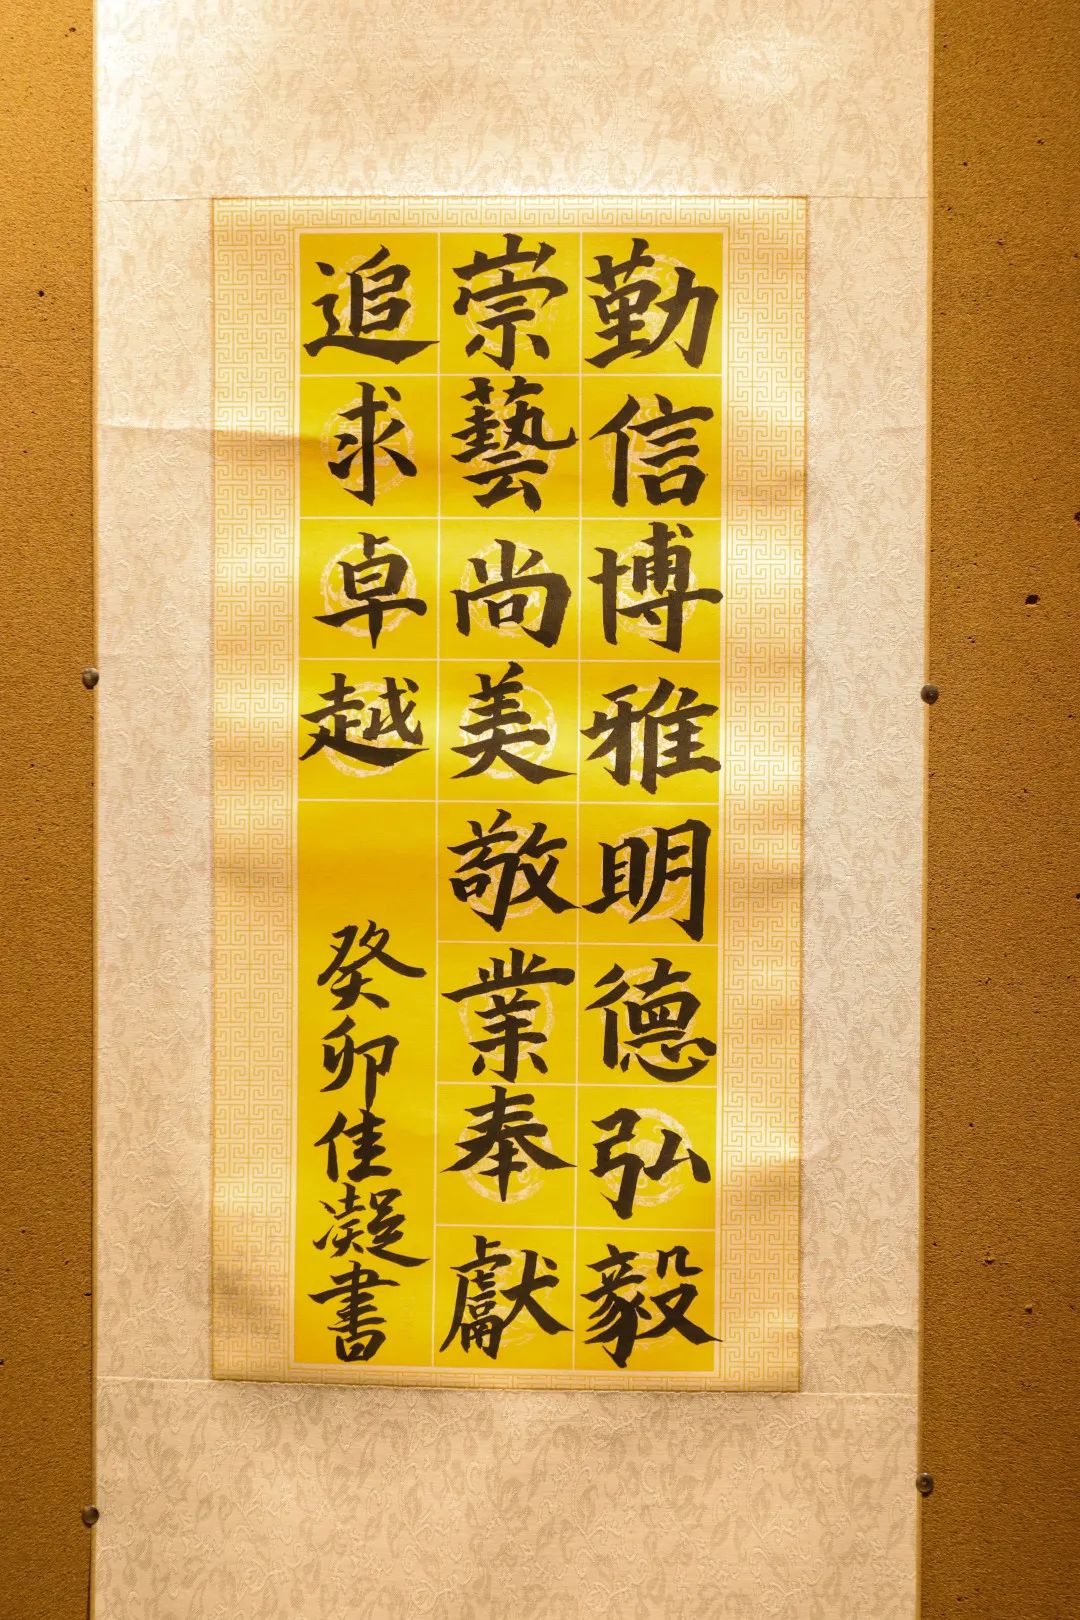 勤信博雅明德弘毅
崇藝尚美敬業奉獻
追求卓越
癸卯佳凝書